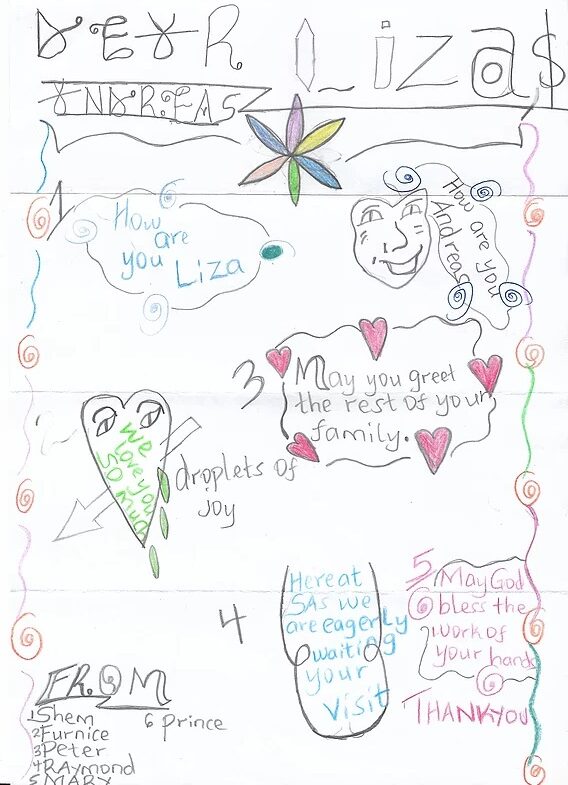 DEAR LIZA $
ANDREAS
1
How
are
you Liza
How are you
Andreas
2
We
love you
so much
droplets of
joy
3
May you greet
the rest of your
family.
4
Here at
SAS we
are eagerly
waiting
your
visit
5
May God
bless the
work of
your hands
THANKYOU
FROM
1 Shem
2 Furnice
3 Peter
4 RAymond
5 MARY
6 Prince